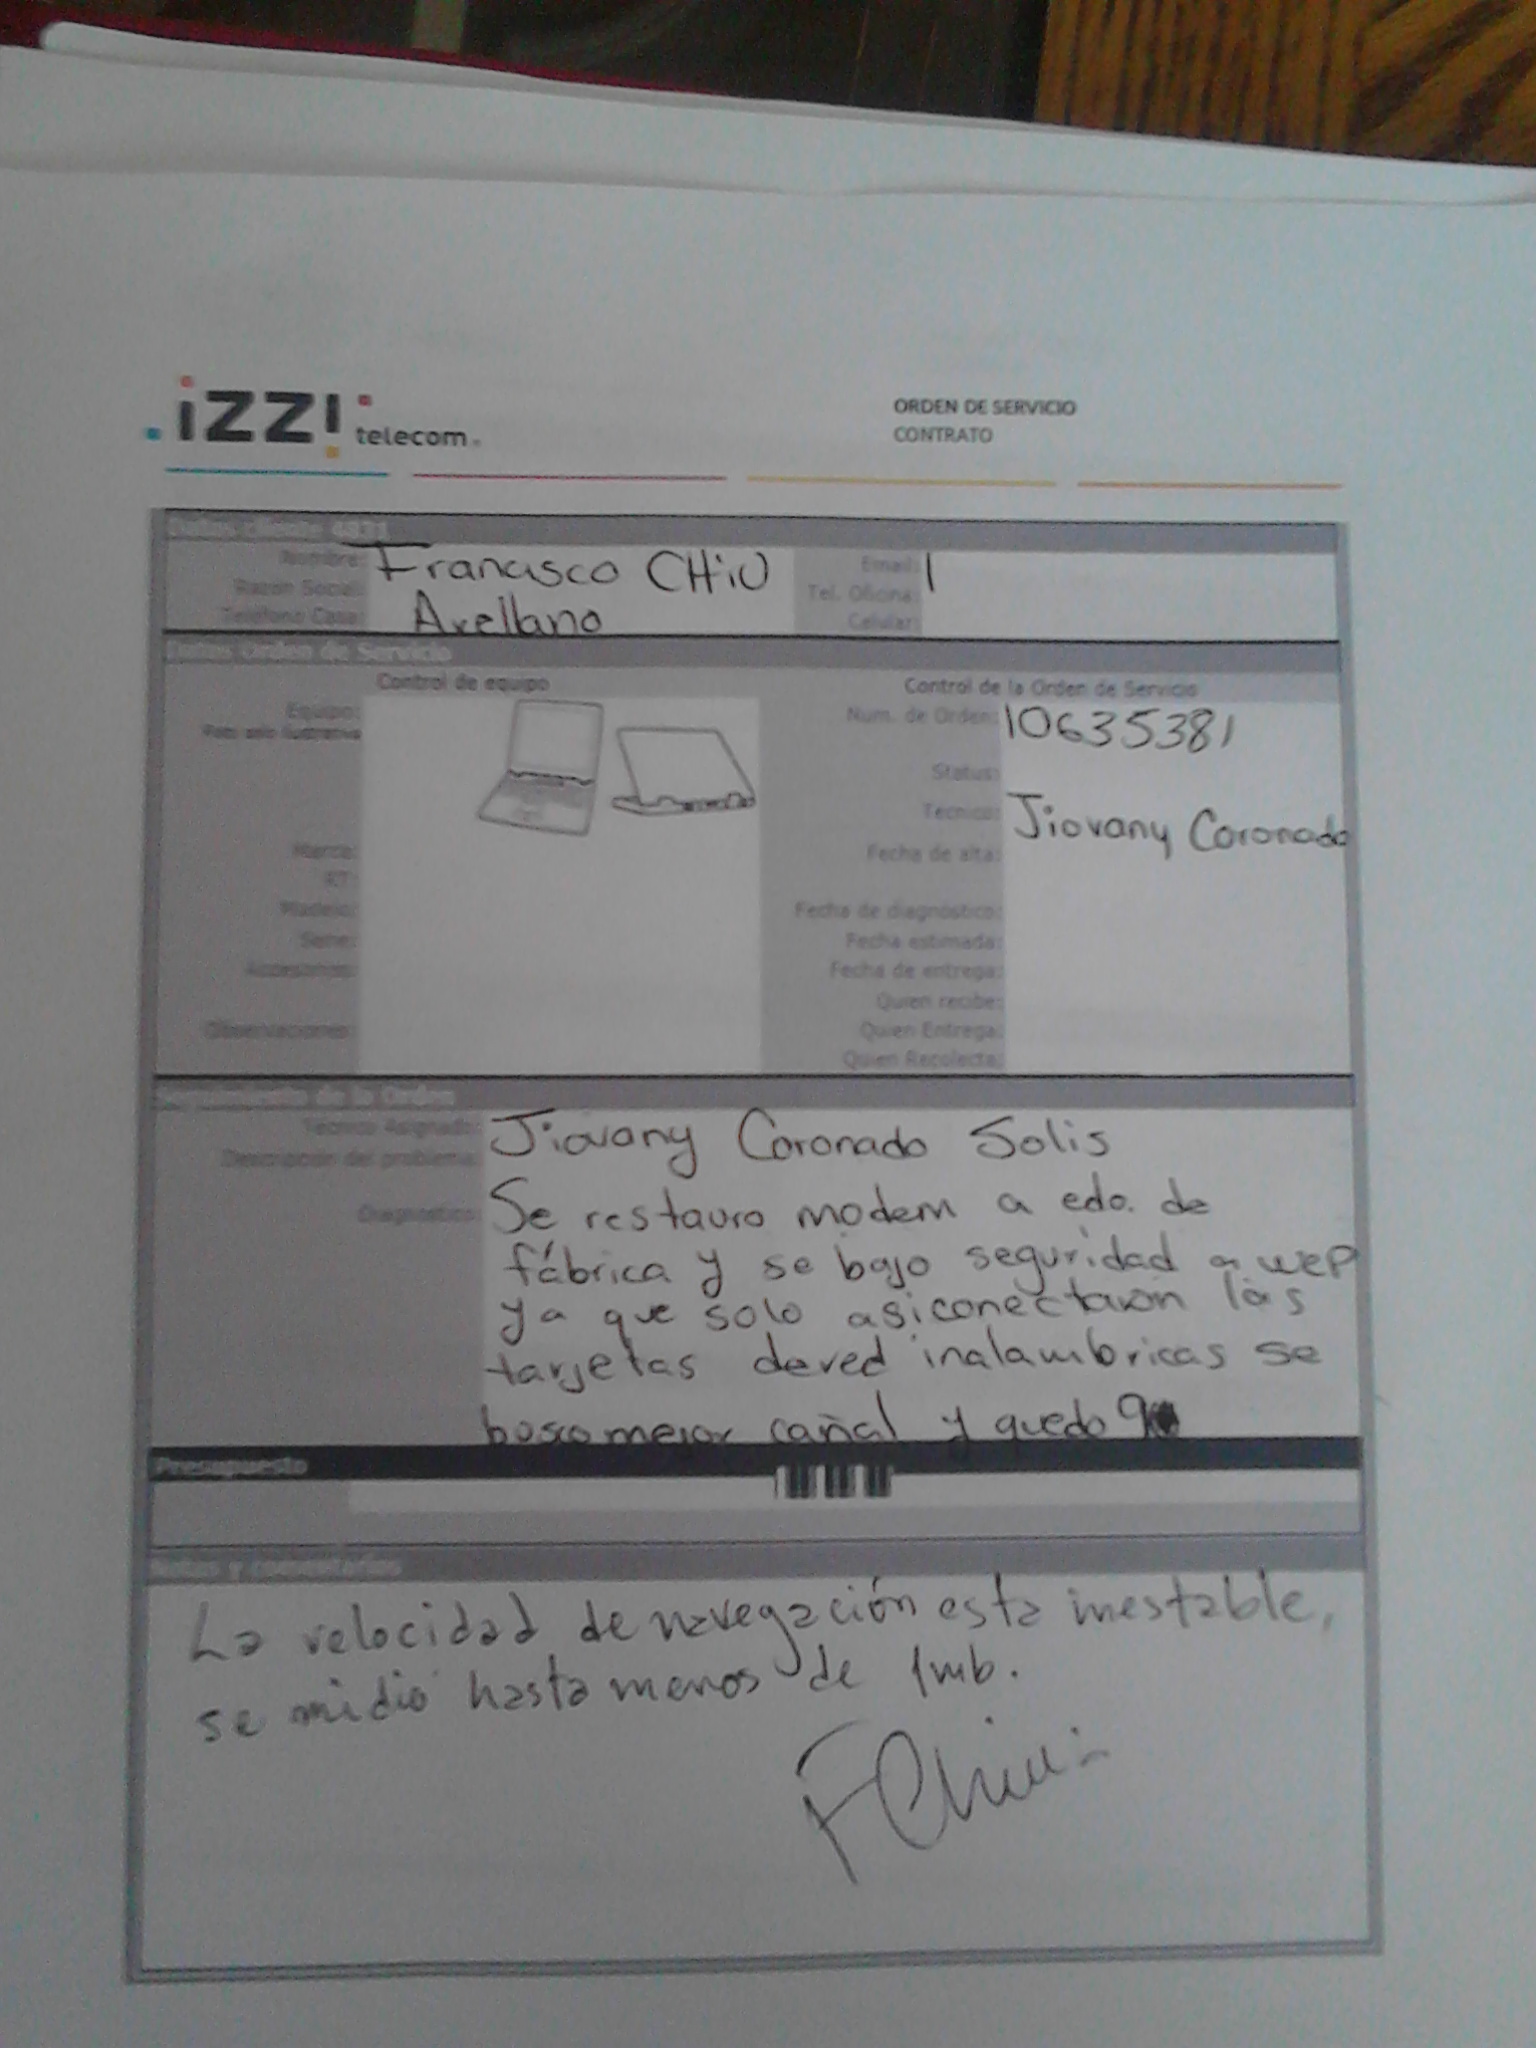 izzi telecom
ORDEN DE SERVICIO
CONTRATO
Datos cliente 4831
Nombre: Francisco CHiU
Razón Social:
Teléfono Casa: Arellano
Email:
Tel. Oficina:
Celular:
Datos Orden de Servicio
Control de equipo
Equipo:
Foto solo ilustrativa
Marca:
Modelo:
Serie:
Accesorios:
Observaciones:
Control de la Orden de Servicio
Num. de Orden: 10635381
Status:
Técnico: Jiovany Coronado
Fecha de alta:
Fecha de diagnostico:
Fecha estimada:
Fecha de entrega:
Quien recibe:
Quien Entrega:
Quien Recolecta:
Seguimiento de la Orden
Técnico Asignado: Jiovany Coronado Solis
Descripción del problema:
Diagnostico: Se restauro modem a edo. de
fábrica y se bajo seguridad a WEP
ya que solo asi conectaron las
tarjetas de red inalambricas se
busco mejor cañal y quedo
Presupuesto
Notas y comentarios
La velocidad de navegación esta inestable,
se midio hasta menos de 1mb.
FChiu